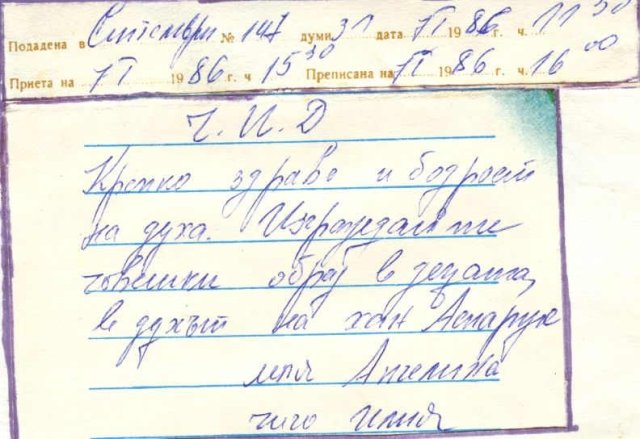 Подадена в Септември № 147 думи 31 дата 7/I 1986 г. ч. 11 30
Приета на 7 I 1986 г. ч 15 30 Преписана на 7/I 1986 г. ч. 16 00
Ч. И. Д
Крепко здраве и бодрост
на духа. Изграждайте
човешки образ в децата,
в духът на хан Аспарух
леля Ангелина
чичо Илия